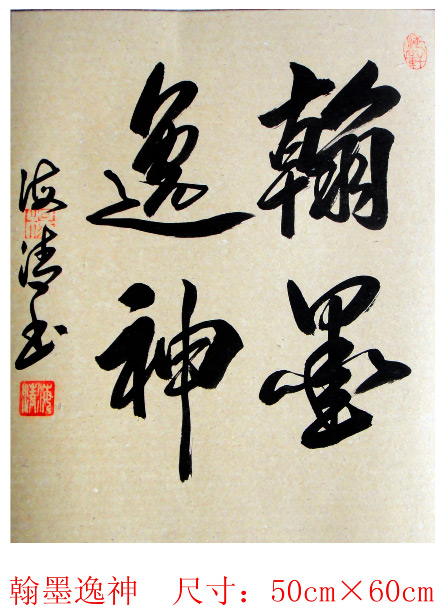 翰墨
逸神
海清书
海清
翰墨逸神 尺寸：50cm×60cm